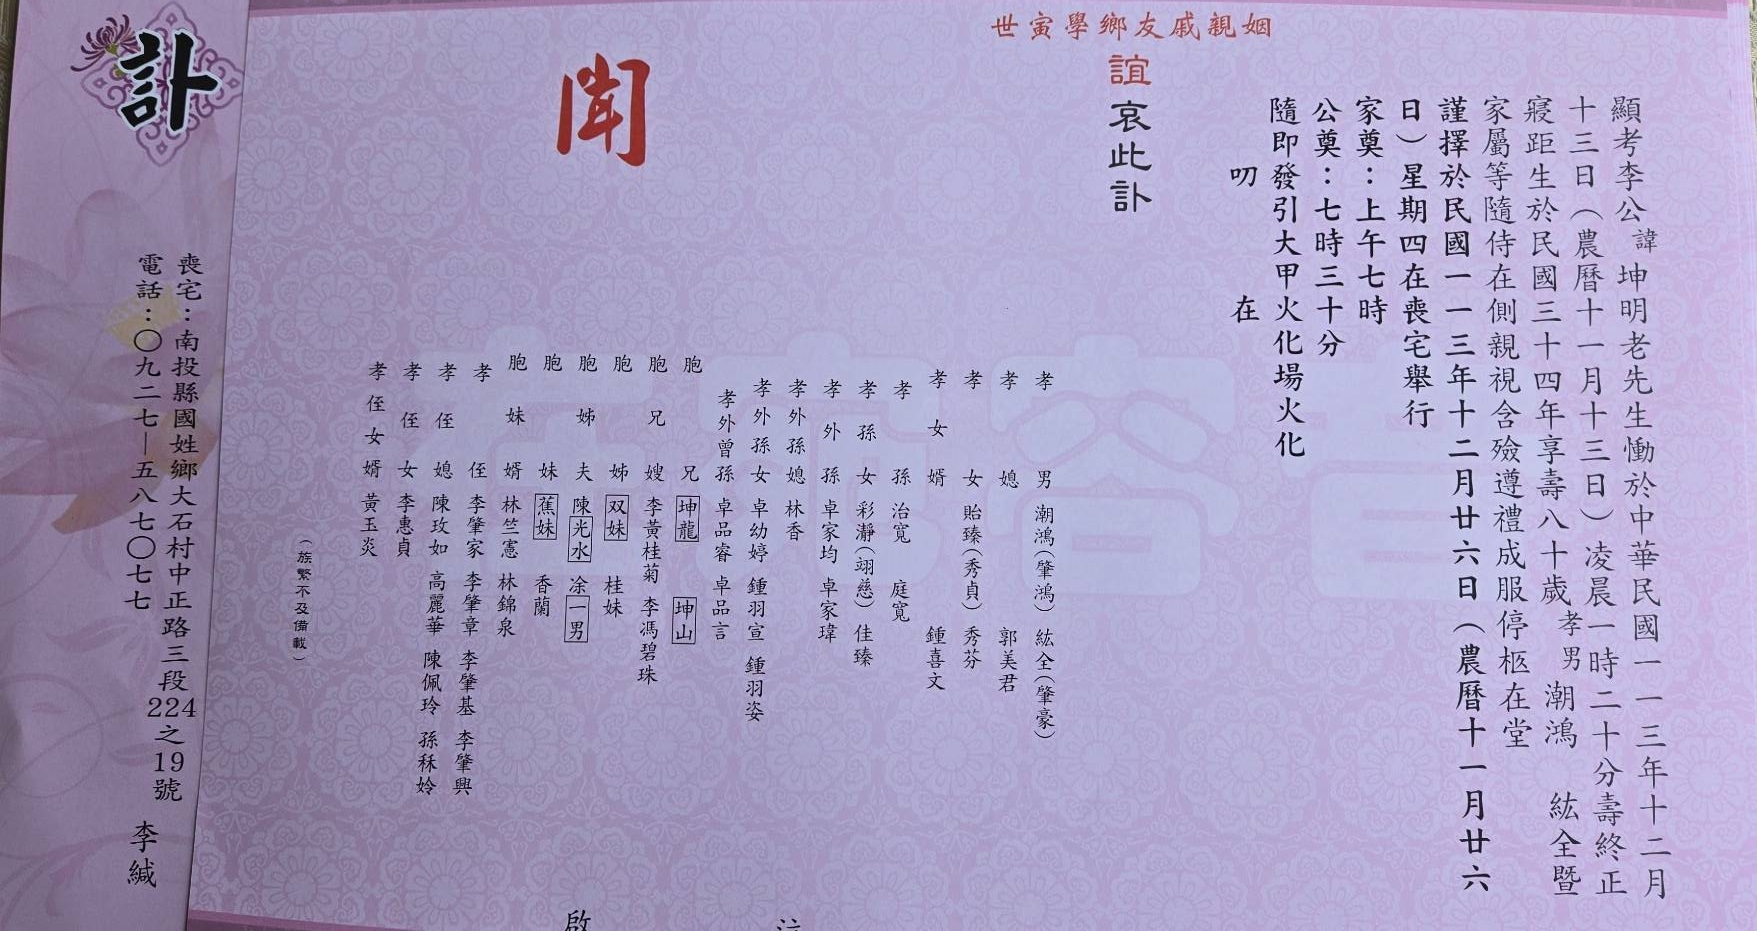 顯考李公諱坤明老先生慟於中華民國一一三年十二月
十三日（農曆十一月十三日）凌晨一時二十分壽終正
寢距生於民國三十四年享壽八十歲孝男潮鴻 紘全暨
家屬等隨侍在側親視含殮遵禮成服停柩在堂
謹擇於民國一一三年十二月廿六日（農曆十一月廿六
日）星期四在喪宅舉行
家奠：上午七時
公奠：七時三十分
隨即發引大甲火化場火化
叨 在
世寅學鄉友戚親姻
誼哀此訃
聞
孝男 潮鴻（肇鴻） 紘全（肇豪）
孝媳 郭美君
孝女 貽臻（秀貞） 秀芬
孝女婿 鍾喜文
孝孫 治寬 庭寬
孝孫女 彩瀞（翊慈） 佳臻
孝外孫 卓家均 卓家瑋
孝外孫媳 林香
孝外孫女 卓幼婷 鍾羽宣 鍾羽姿
孝外曾孫 卓品睿 卓品言
胞兄 坤龍 坤山
胞兄嫂 李黃桂菊 李馮碧珠
胞姊 双妹 桂妹
胞姊夫 陳光水 凃一男
胞妹 蕉妹 香蘭
胞妹婿 林竺憲 林錦泉
孝侄 李肇家 李肇章 李肇基 李肇興
孝侄媳 陳玫如 高麗華 陳佩玲 孫秝姈
孝侄女 李惠貞
孝侄女婿 黃玉炎
（族繁不及備載）
啟
訃
喪宅：南投縣國姓鄉大石村中正路三段224之19號
電話：〇九二七—五八七〇七七 李緘